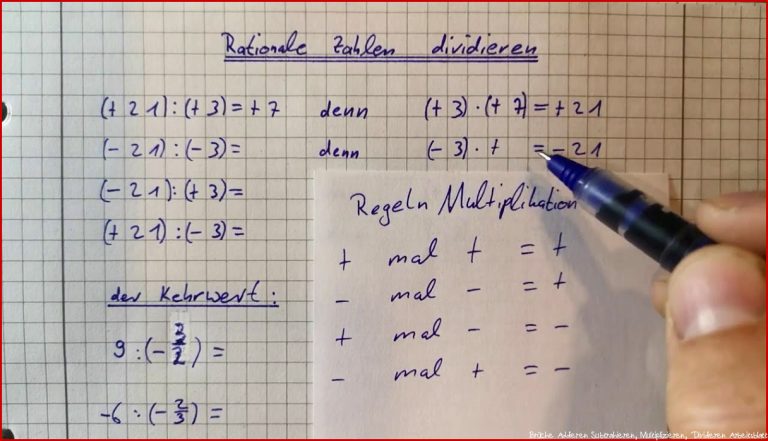 Rationale Zahlen dividieren
(+ 2 1) : (+ 3) = + 7 denn (+ 3) · (+ 7) = + 2 1
(- 2 1) : (- 3) = denn (- 3) · + = - 2 1
(- 2 1) : (+ 3) =
(+ 2 1) : (- 3) =
der Kehrwert :
9 : (- 3/2) =
-6 : (- 2/3) =
Regeln Multiplikation
+ mal + = +
- mal - = +
+ mal - = -
- mal + = -
Brüche Addieren Subtrahieren, Multiplizieren, Dividieren Arbeitsblatt